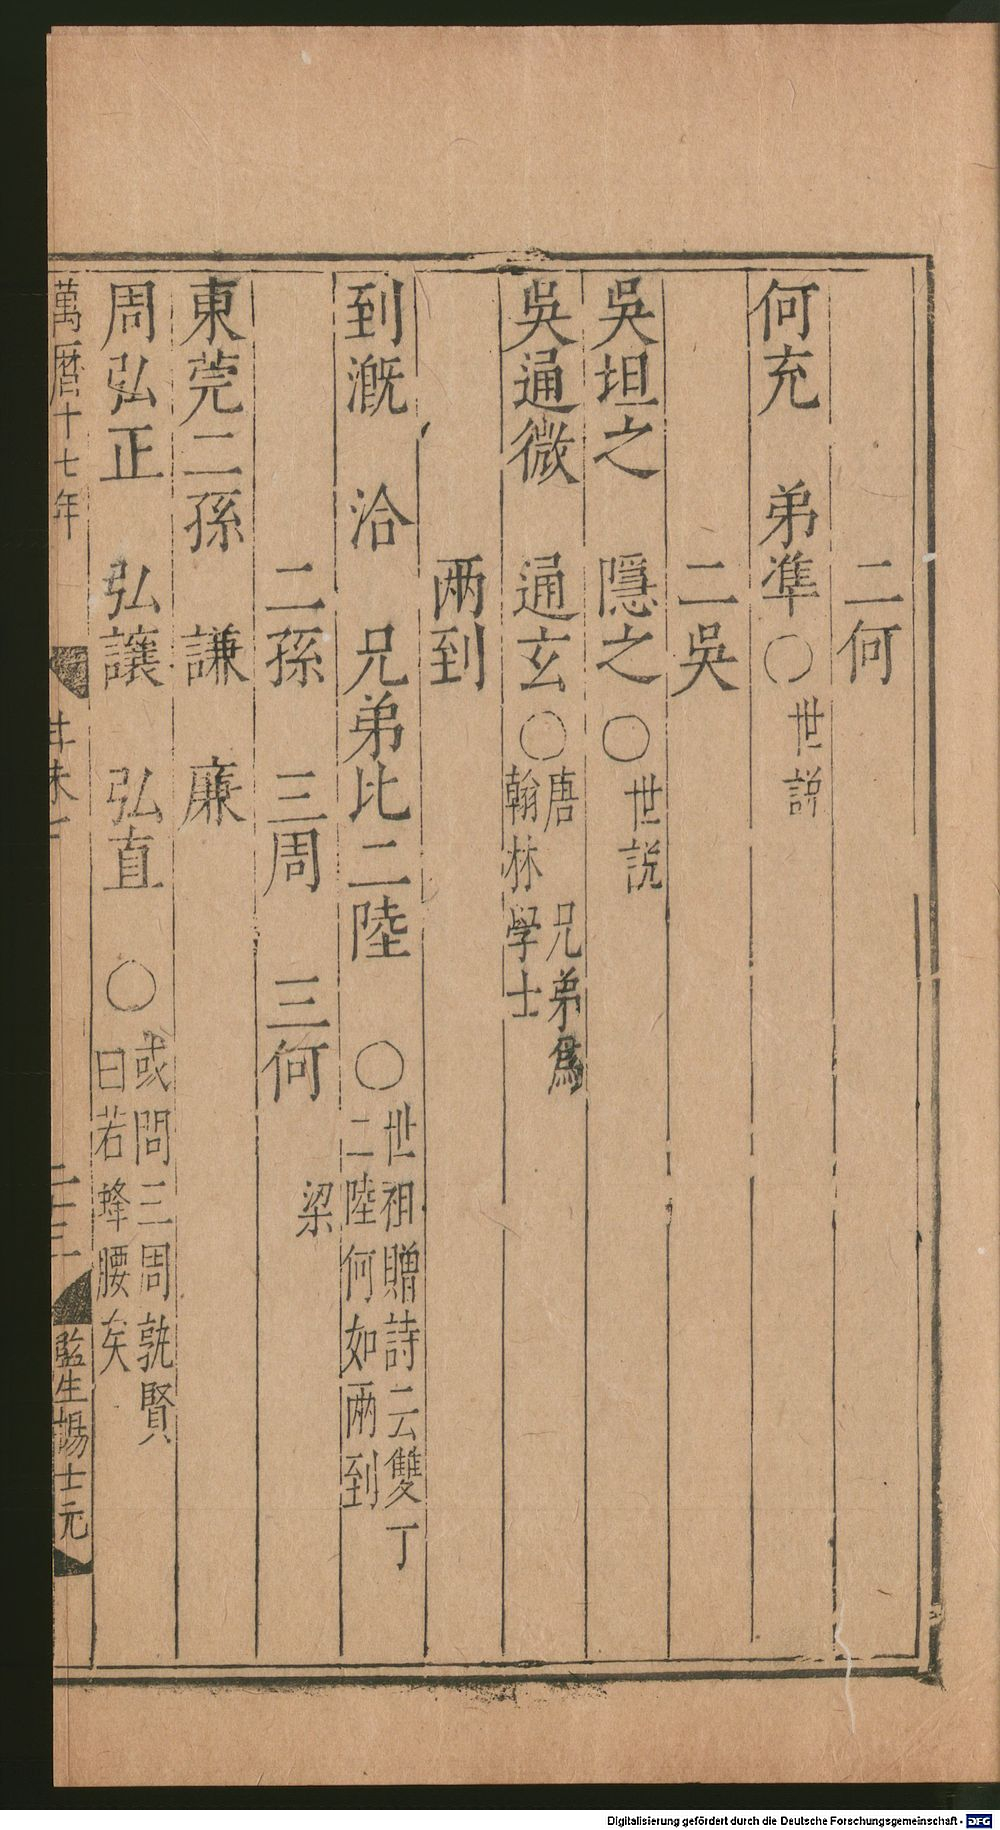 二何
何充　弟準○世説
二吳
吳坦之　隱之○世説
吳通微　通玄○唐　兄弟爲
翰林學士
两到
到漑　洽　兄弟比二陸　○世祖贈詩云雙丁
二陸何如兩到
二孫　三周　三何　梁
東莞二孫　謙　廉
周弘正　弘讓　弘直　○或問三周孰賢
曰若蜂腰矣
萬曆十七年
二十二
監生楊士元
Digitalisierung gefördert durch die Deutsche Forschungsgemeinschaft - DFG